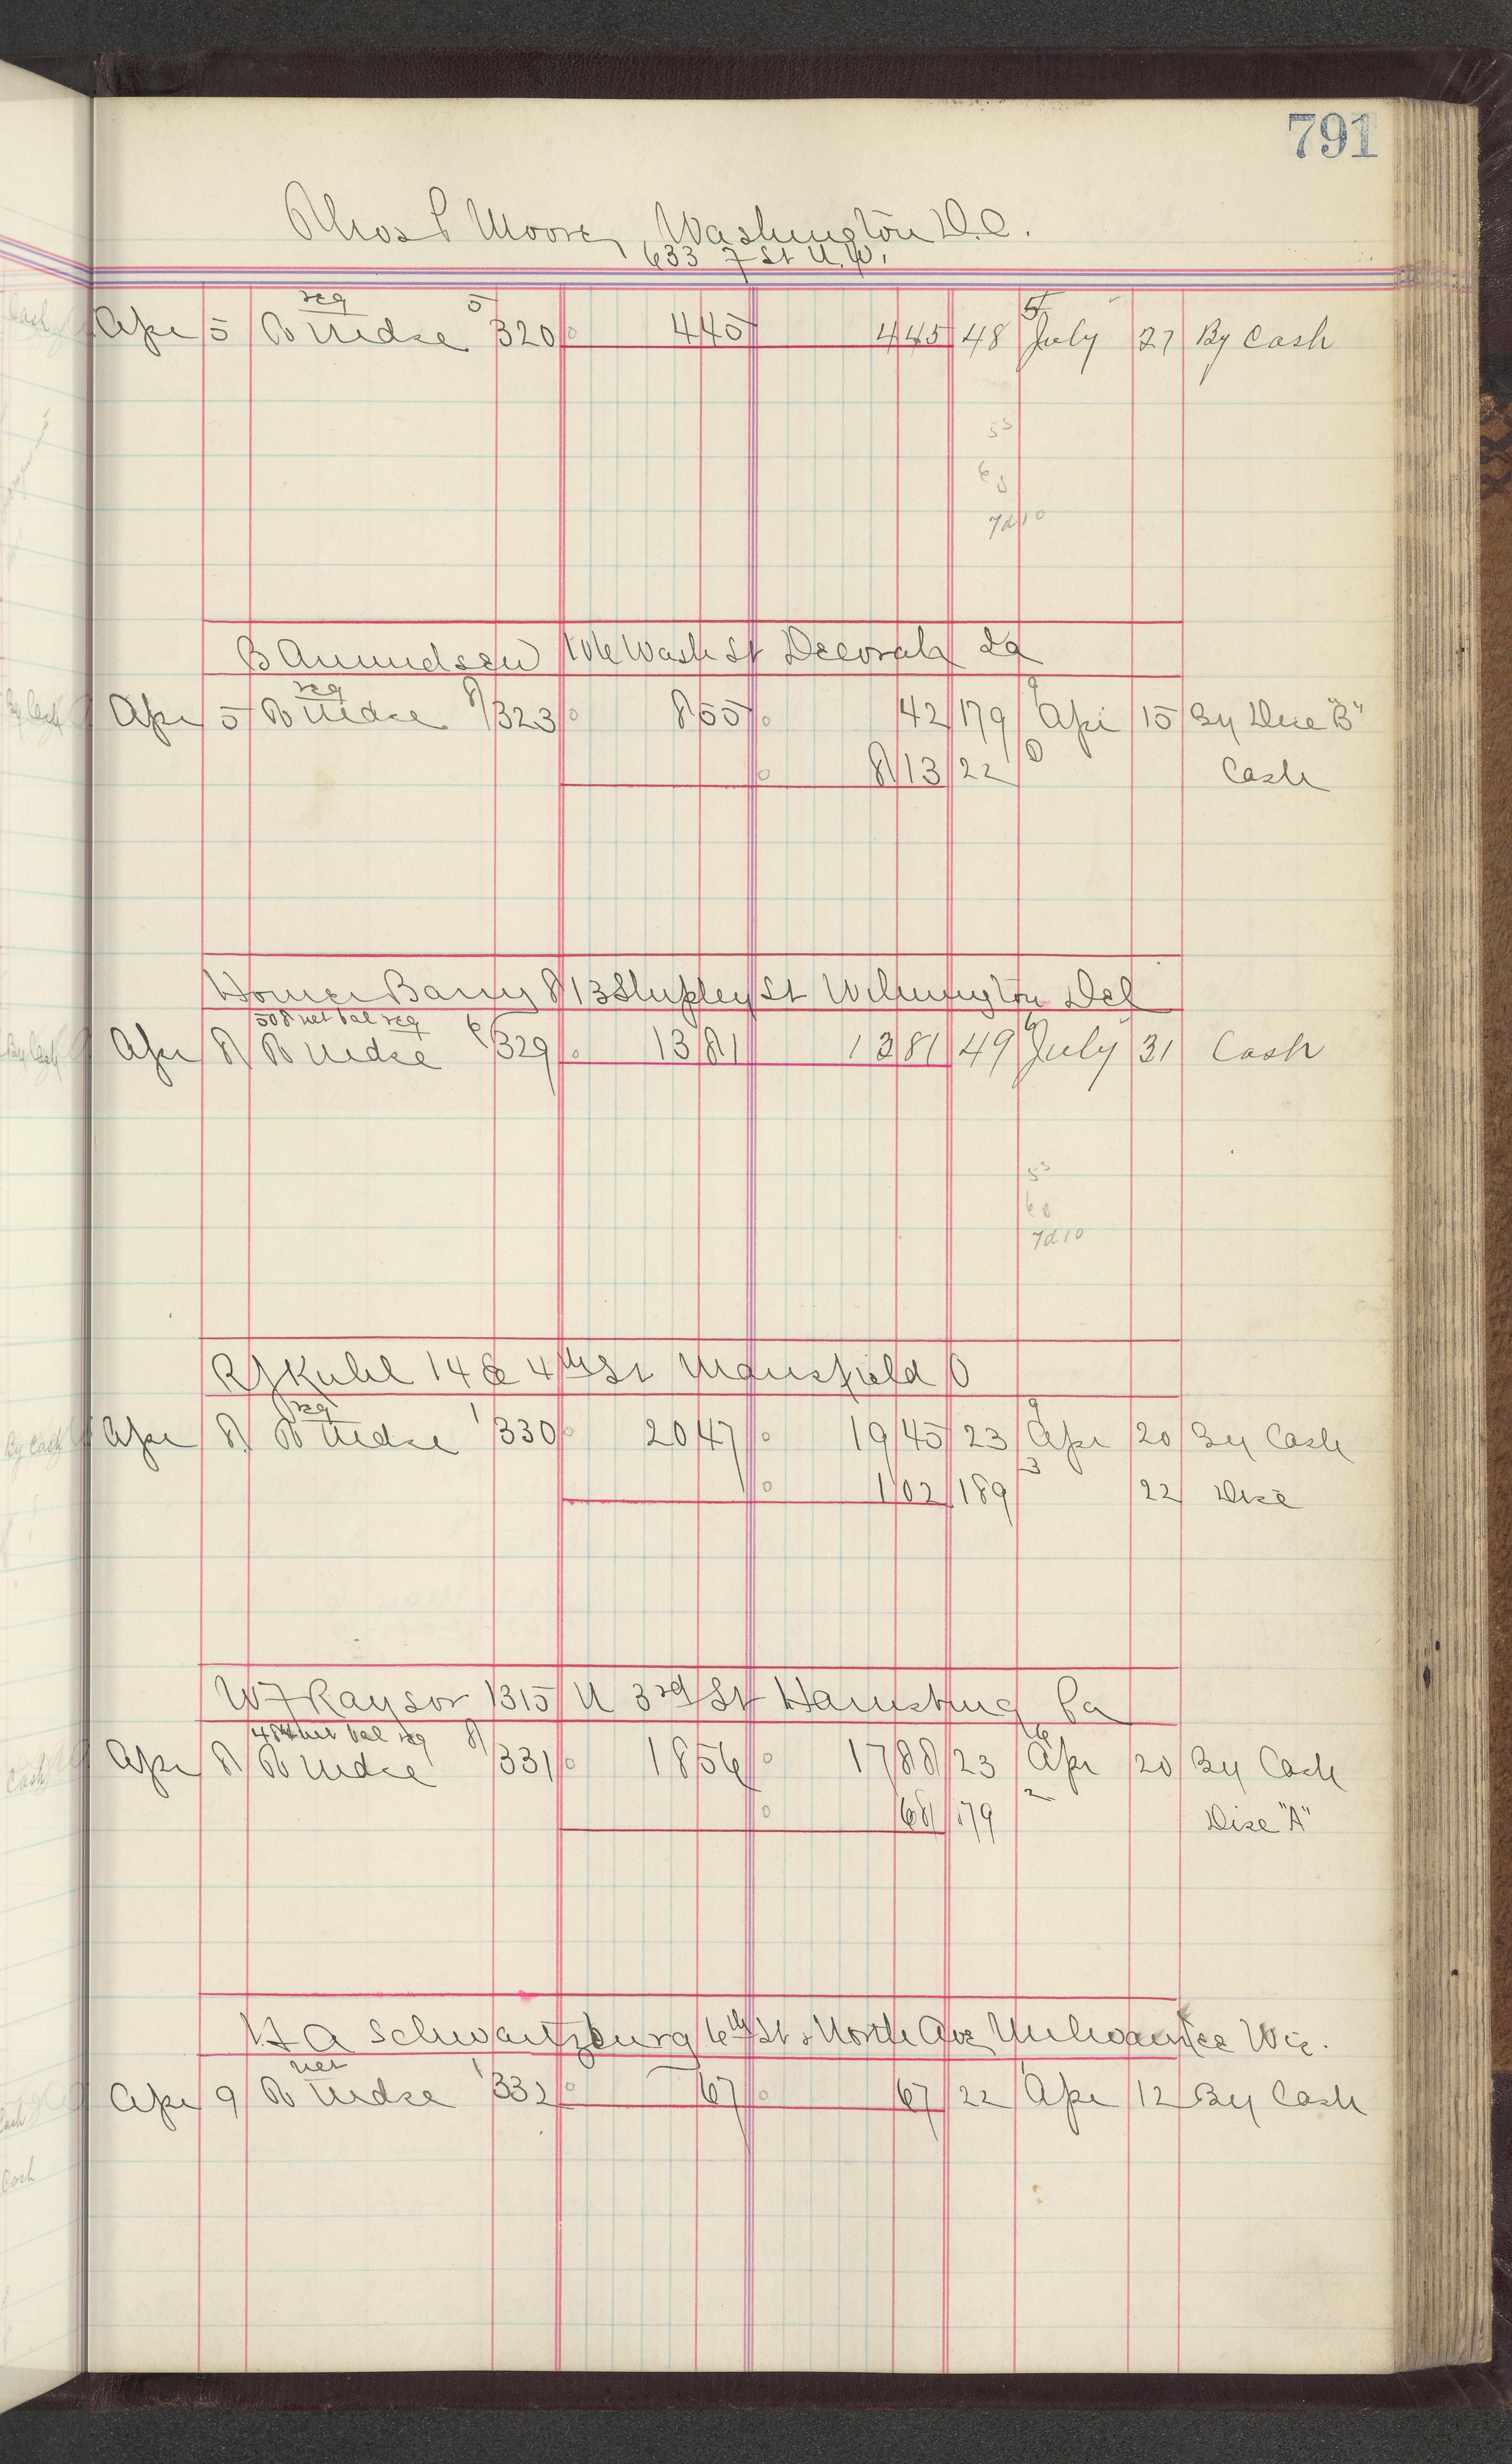 791
Thos S Moore, Washington D.C.
633 7 St N.W.
reg 5 5
Apr 5 To Mdse 320 4 45 4 45 48 July 27 By Cash
5 3
6 8
7d10
B Anundsen Wash St Decorah Ia
reg 8 9
Apr 5 To Mdse 323 8 55 42 179 Apr 15 By Disc "B"
8 13 22 Cash
Homer Barry 813 Shipley St Wilmington Del
508 net bal reg 6 6
Apr 8 To Mdse 329 13 81 13 81 49 July 31 Cash
5 3
6 8
7d10
R J Kuhl 14 E 4th St Mansfield O
reg 1 9
Apr 8 To Mdse 330 20 47 19 45 23 Apr 20 By Cash
3
1 02 189 22 Disc
W F Raysor 1315 N 3rd St Harrisburg Pa
484 net bal reg 8 6
Apr 8 To Mdse 331 18 56 17 88 23 Apr 20 By Cash
2
68 179 Disc "A"
H A Schwartzburg 6th St & North Ave Milwaukee Wis.
net 1
Apr 9 To Mdse 332 67 67 22 Apr 12 By Cash